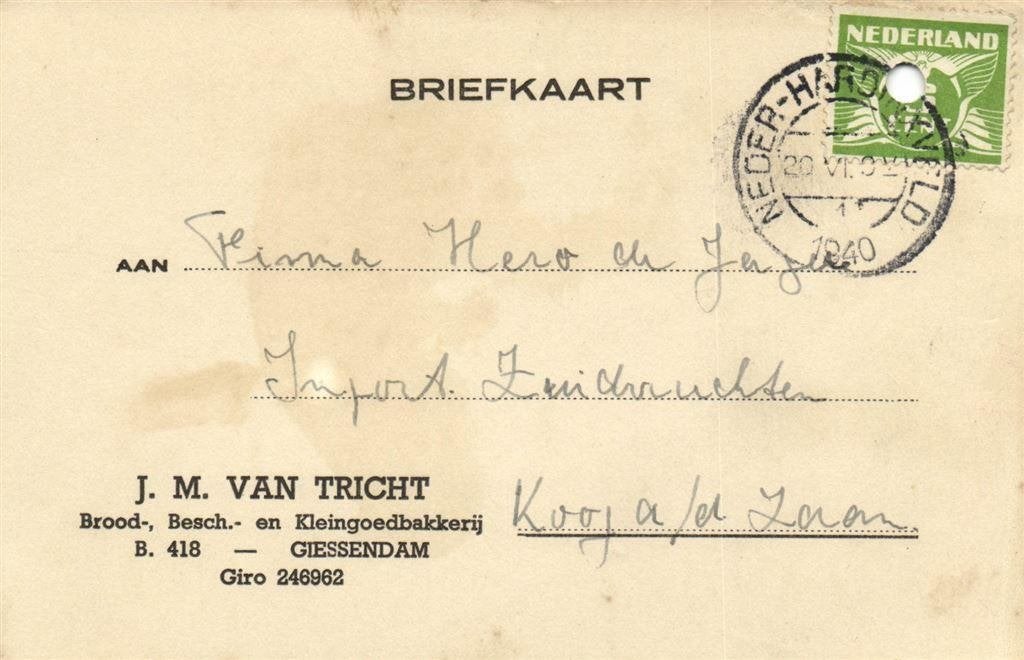 NEDERLAND
BRIEFKAART
NEDER-HARDINXVELD
20 VI
1940
AAN Firma Hero de Jager
Import. Zuidvruchten
Koog a/d Zaan.
J. M. VAN TRICHT
Brood-, Besch.- en Kleingoedbakkerij
B. 418 — GIESSENDAM
Giro 246962